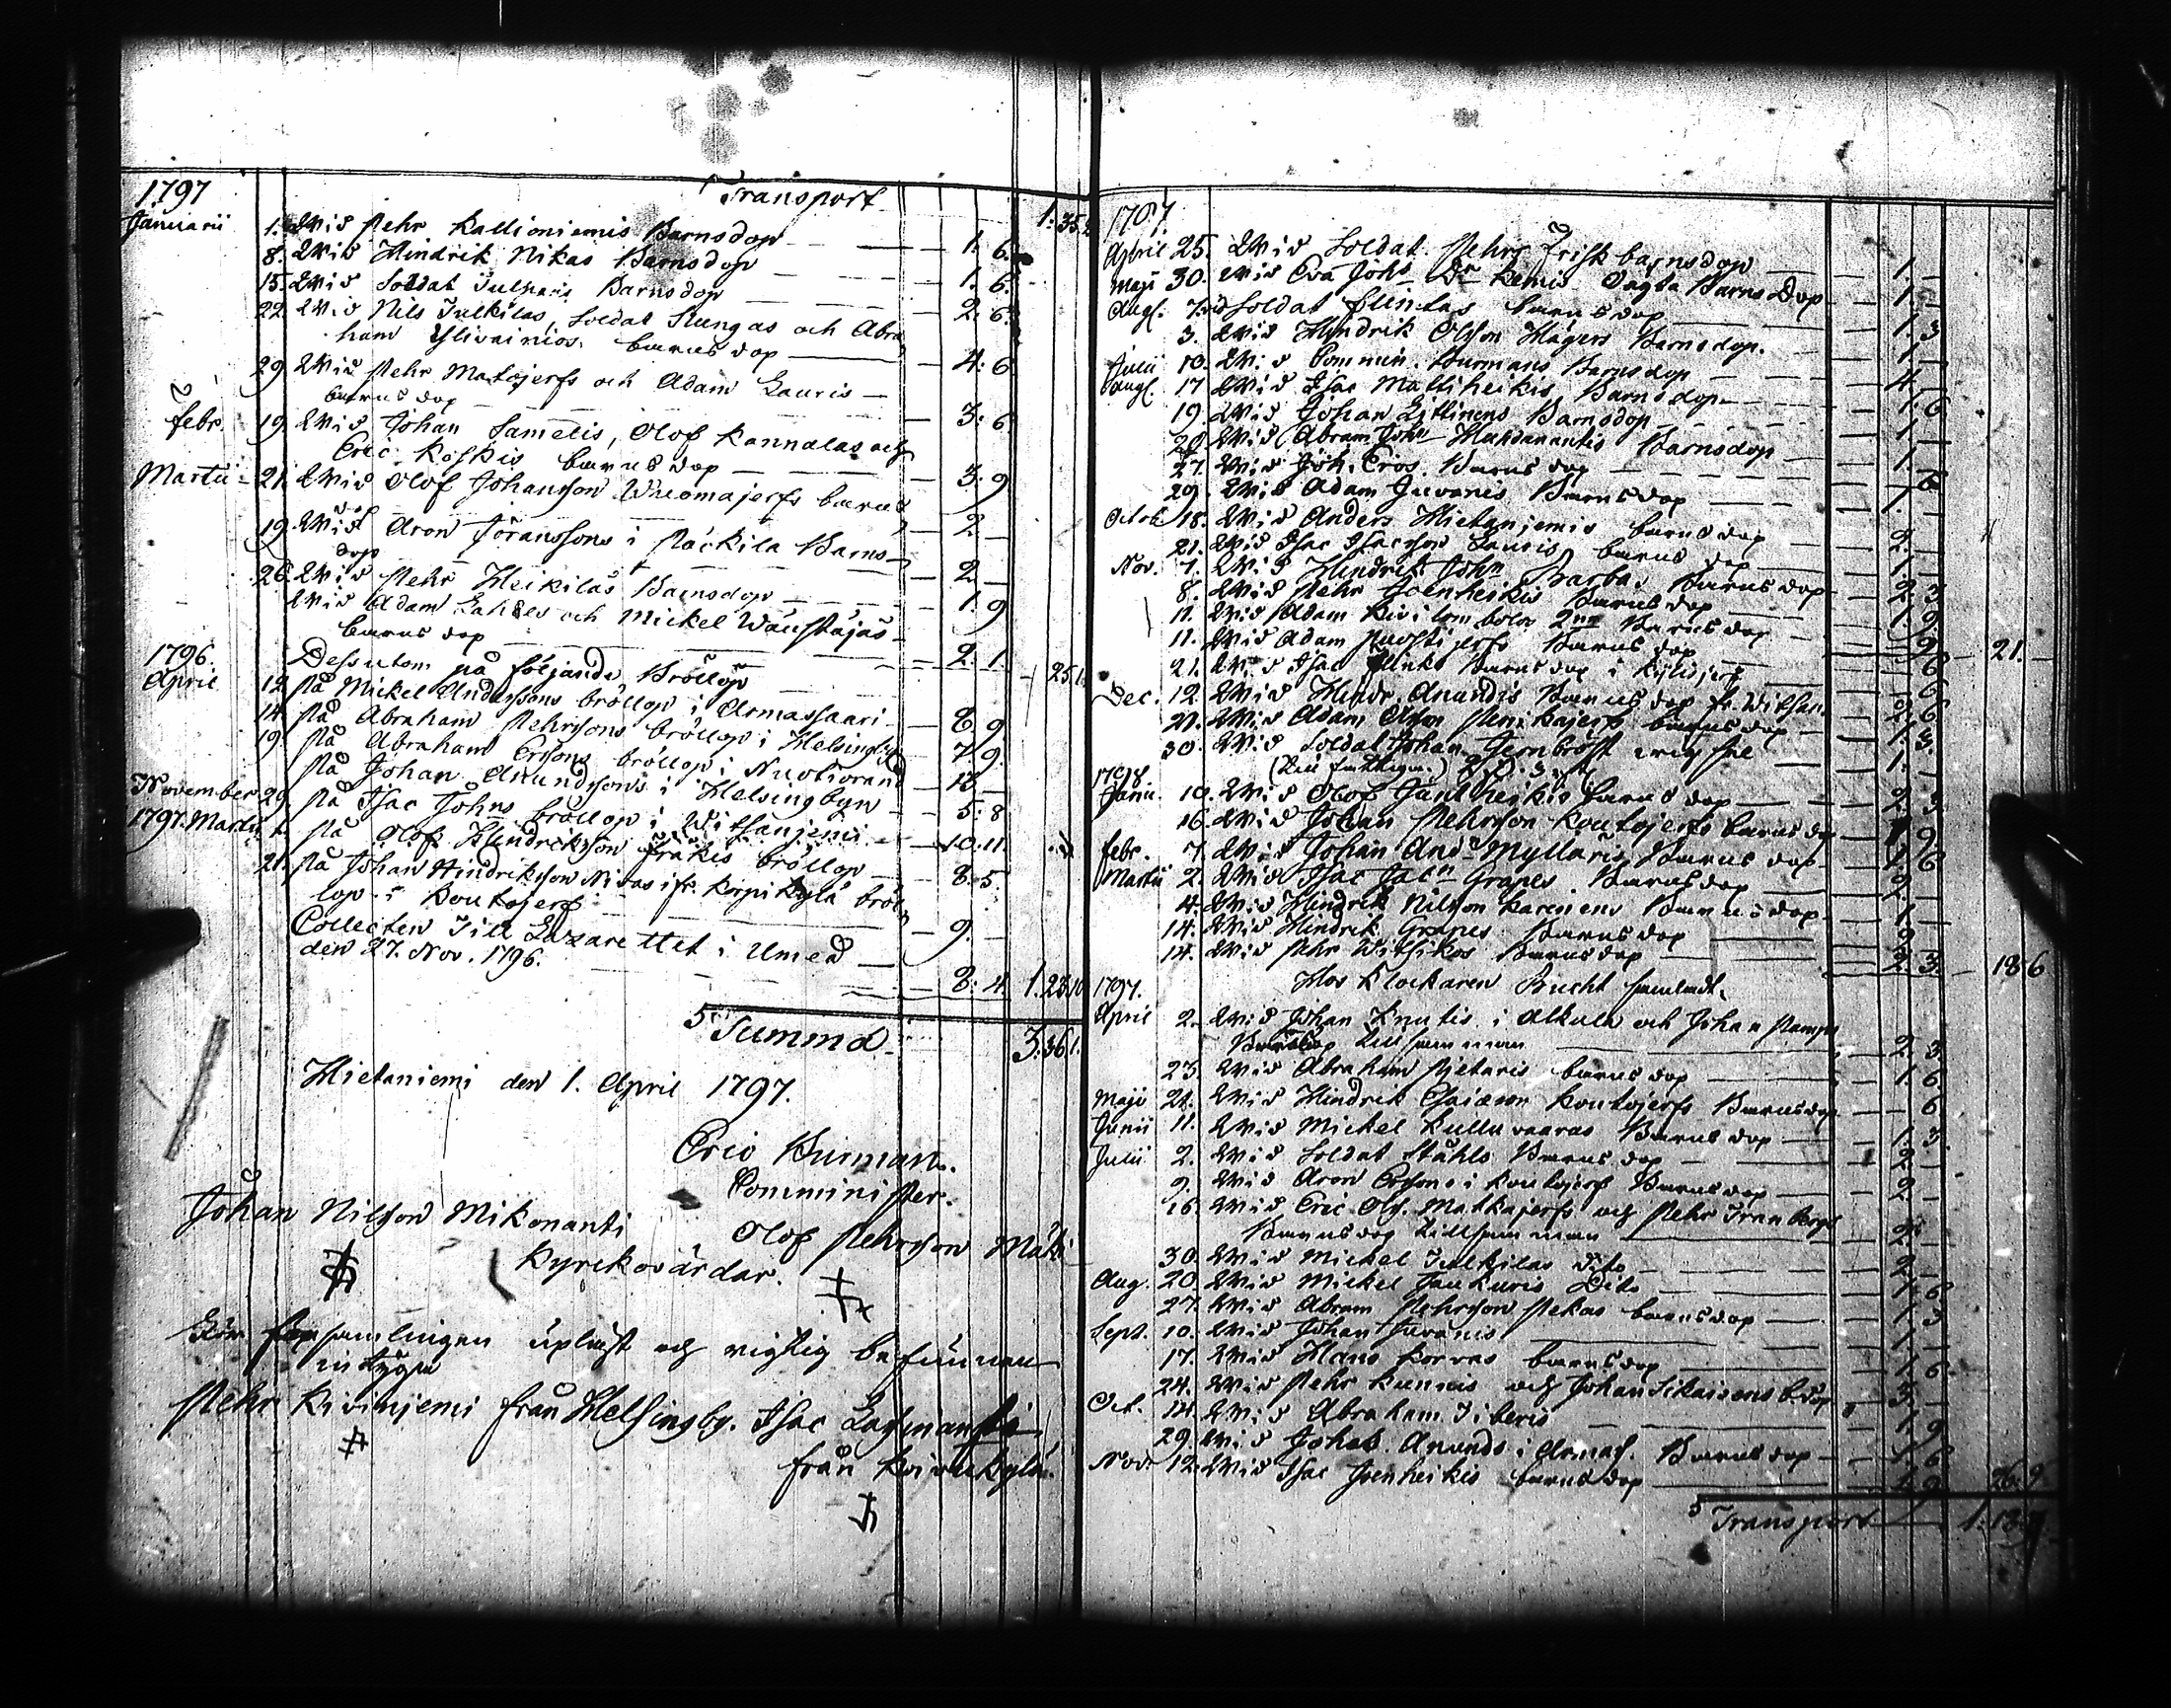 1797 Transport 1. 35.
Januarii 1. Wid Pehr Kallioniemis Barnsdop 1. 6.
8. Wid Hindrik Nikas Barnsdop 1. 6.
15. Wid Soldat Barnsdop 2. 6.
22. Wid Nils Julkilas, Soldat Slungas och Abra
ham Ylivainios. barnsdop 4. 6.
29. Wid Pehr Matojerfs och Adam Lauris
barnsdop 3. 6.
febr. 19. Wid Johan Samelis, Olof Kannalas och
Eric Koskis barnsdop 3. 9
Martii 21. Wid Olof Johansson Wuomajerfs barns
dop 2.
19. Wid Aron Göranssons i Päckila Barns
dop 2.
26. Wid Pehr Heikilas Barnsdop 1. 9
Wid Adam och Mickel
barnsdop 2. 1. 25.1.
1796. Dessutom på följande Bröllop
April 12. på Mickel Anderssons bröllop i Armassaari 8. 9
14. på Abraham Pehrssons bröllop i Helsingby 7. 9.
19. på Abraham Ersons bröllop i Nuotiorand 13
på Johan Amundssons i Helsingbyn 5. 8
November 29. på Isac Johns bröllop i Witsanjemi 10. 11.
1797. Martii 1. på Olof Hindriksson Fräkis bröllop 8. 5.
21. på Johan Hindriksson Nivas i fr. Korpikylä bröl
lop i Koutojerf 9.
Collecten Till Lazarettet i Umeå
den 27. Nov. 1796. 8. 4. 1. 23.10
Summa 3. 36. 1.
Hietaniemi den 1. April 1797.
Eric Burman.
Comminister.
Johan Nilsson Mikonanti
Olof Pehrsson Matti
Kyrckovärdar.
församlingen upläst och rigtig befunnen
intyga
Pehr Kivinjemi från Helsingby. Isac
från Koivukylä.
1797
April 25. Wid Soldat. Pehrs Frisk barnsdop 1.
Maji 30. Wid Eva Johs Dr Kemis Dagta Barns Dop 1.
Aug. 7. Wid Soldat Flintas barnsdop 1. 3
3. Wid Hindrik Olsson Hägers Barnsdop. 1.
Julii 10. Wid Commin. Burmans Barnsdop 4.
Aug. 17 Wid Isac Mattiheikis Barnsdop 1. 6
19. Wid Johan Littinens Barnsdop 1.
20. Wid Abram Johns Barnsdop 1.
27. Wid Joh. Eros Barnsdop 6
29. Wid Adam Juvanis Barnsdop 1.
Octob. 18. Wid Anders Hietanjemis barnsdop 2.
21. Wid Isac Isacsson Lauris barnsdop 1.
Nov. 1. Wid Hindrik Johns Barbas Barnsdop 2. 3
8. Wid Pehr Joenheikis Barnsdop 1. 9
11. Wid Adam Barnsdop 9.
11. Wid Adam Puostijerfs Barnsdop 6 21.
21. Wid Isac Barnsdop i
Dec. 12. Wid Hindr. Anundis Barnsdop fr. Witsan. 2. 6
27. Wid Adam Olsson barnsdop 1. 3.
30. Wid Soldat Johan Jernbröst 1.
1798.
Janu. 10. Wid Olof Janheikis barnsdop 2. 3
16. Wid Johan Pehrsson Koutojerfs barnsdop 9
febr. 7. Wid Johan Ands Myllaris Barnsdop 1. 6
Martii 2. Wid Isac Jacn Grapes Barnsdop 2.
4. Wid Hindrik Nilsson Karenens Barnsdop 1.
14. Wid Hindrik Grapes Barnsdop 9
14. Wid Pehr Witsikos Barnsdop 2. 3. 18 6
1797. Hos Klockaren Bucht samladt.
April 2. Wid Johan Knutis i Alkula och Johan
Barnsdop tillsamman 2. 3.
23. Wid Abraham Pietaris barnsdop 1. 6.
Maji 21. Wid Hindrik Koutojerfs Barnsdop 6.
Junii 11. Wid Mickel Kulluvaaras Barnsdop 1. 3.
Julii 2. Wid Soldat Ståhls Barnsdop 2
9. Wid Aron Ersons i Koutojerf Barnsdop 2
16. Wid Eric Ols. Matkajerfs och Pehr
Barnsdop tillsamman 2.
30. Wid Mickel Julkilas dito 2
Aug. 20. Wid Mickel Dito 1. 6
27. Wid Abram Pehrsson Pekas barnsdop 1. 3
Sept. 10. Wid Johan Juvanis 1
17. Wid Hans Korvas barnsdop 1. 6.
24. Wid Pehr Kunnis och Johan Sikaisens b.dop 3.
Oct. 14. Wid Abraham Tiberis 1. 9
29. Wid Johan Anunds i Armas. Barnsdop 1. 6
Nov. 12. Wid Isac Joenheikis barnsdop 26. 9.
Transport 1. 18. 9